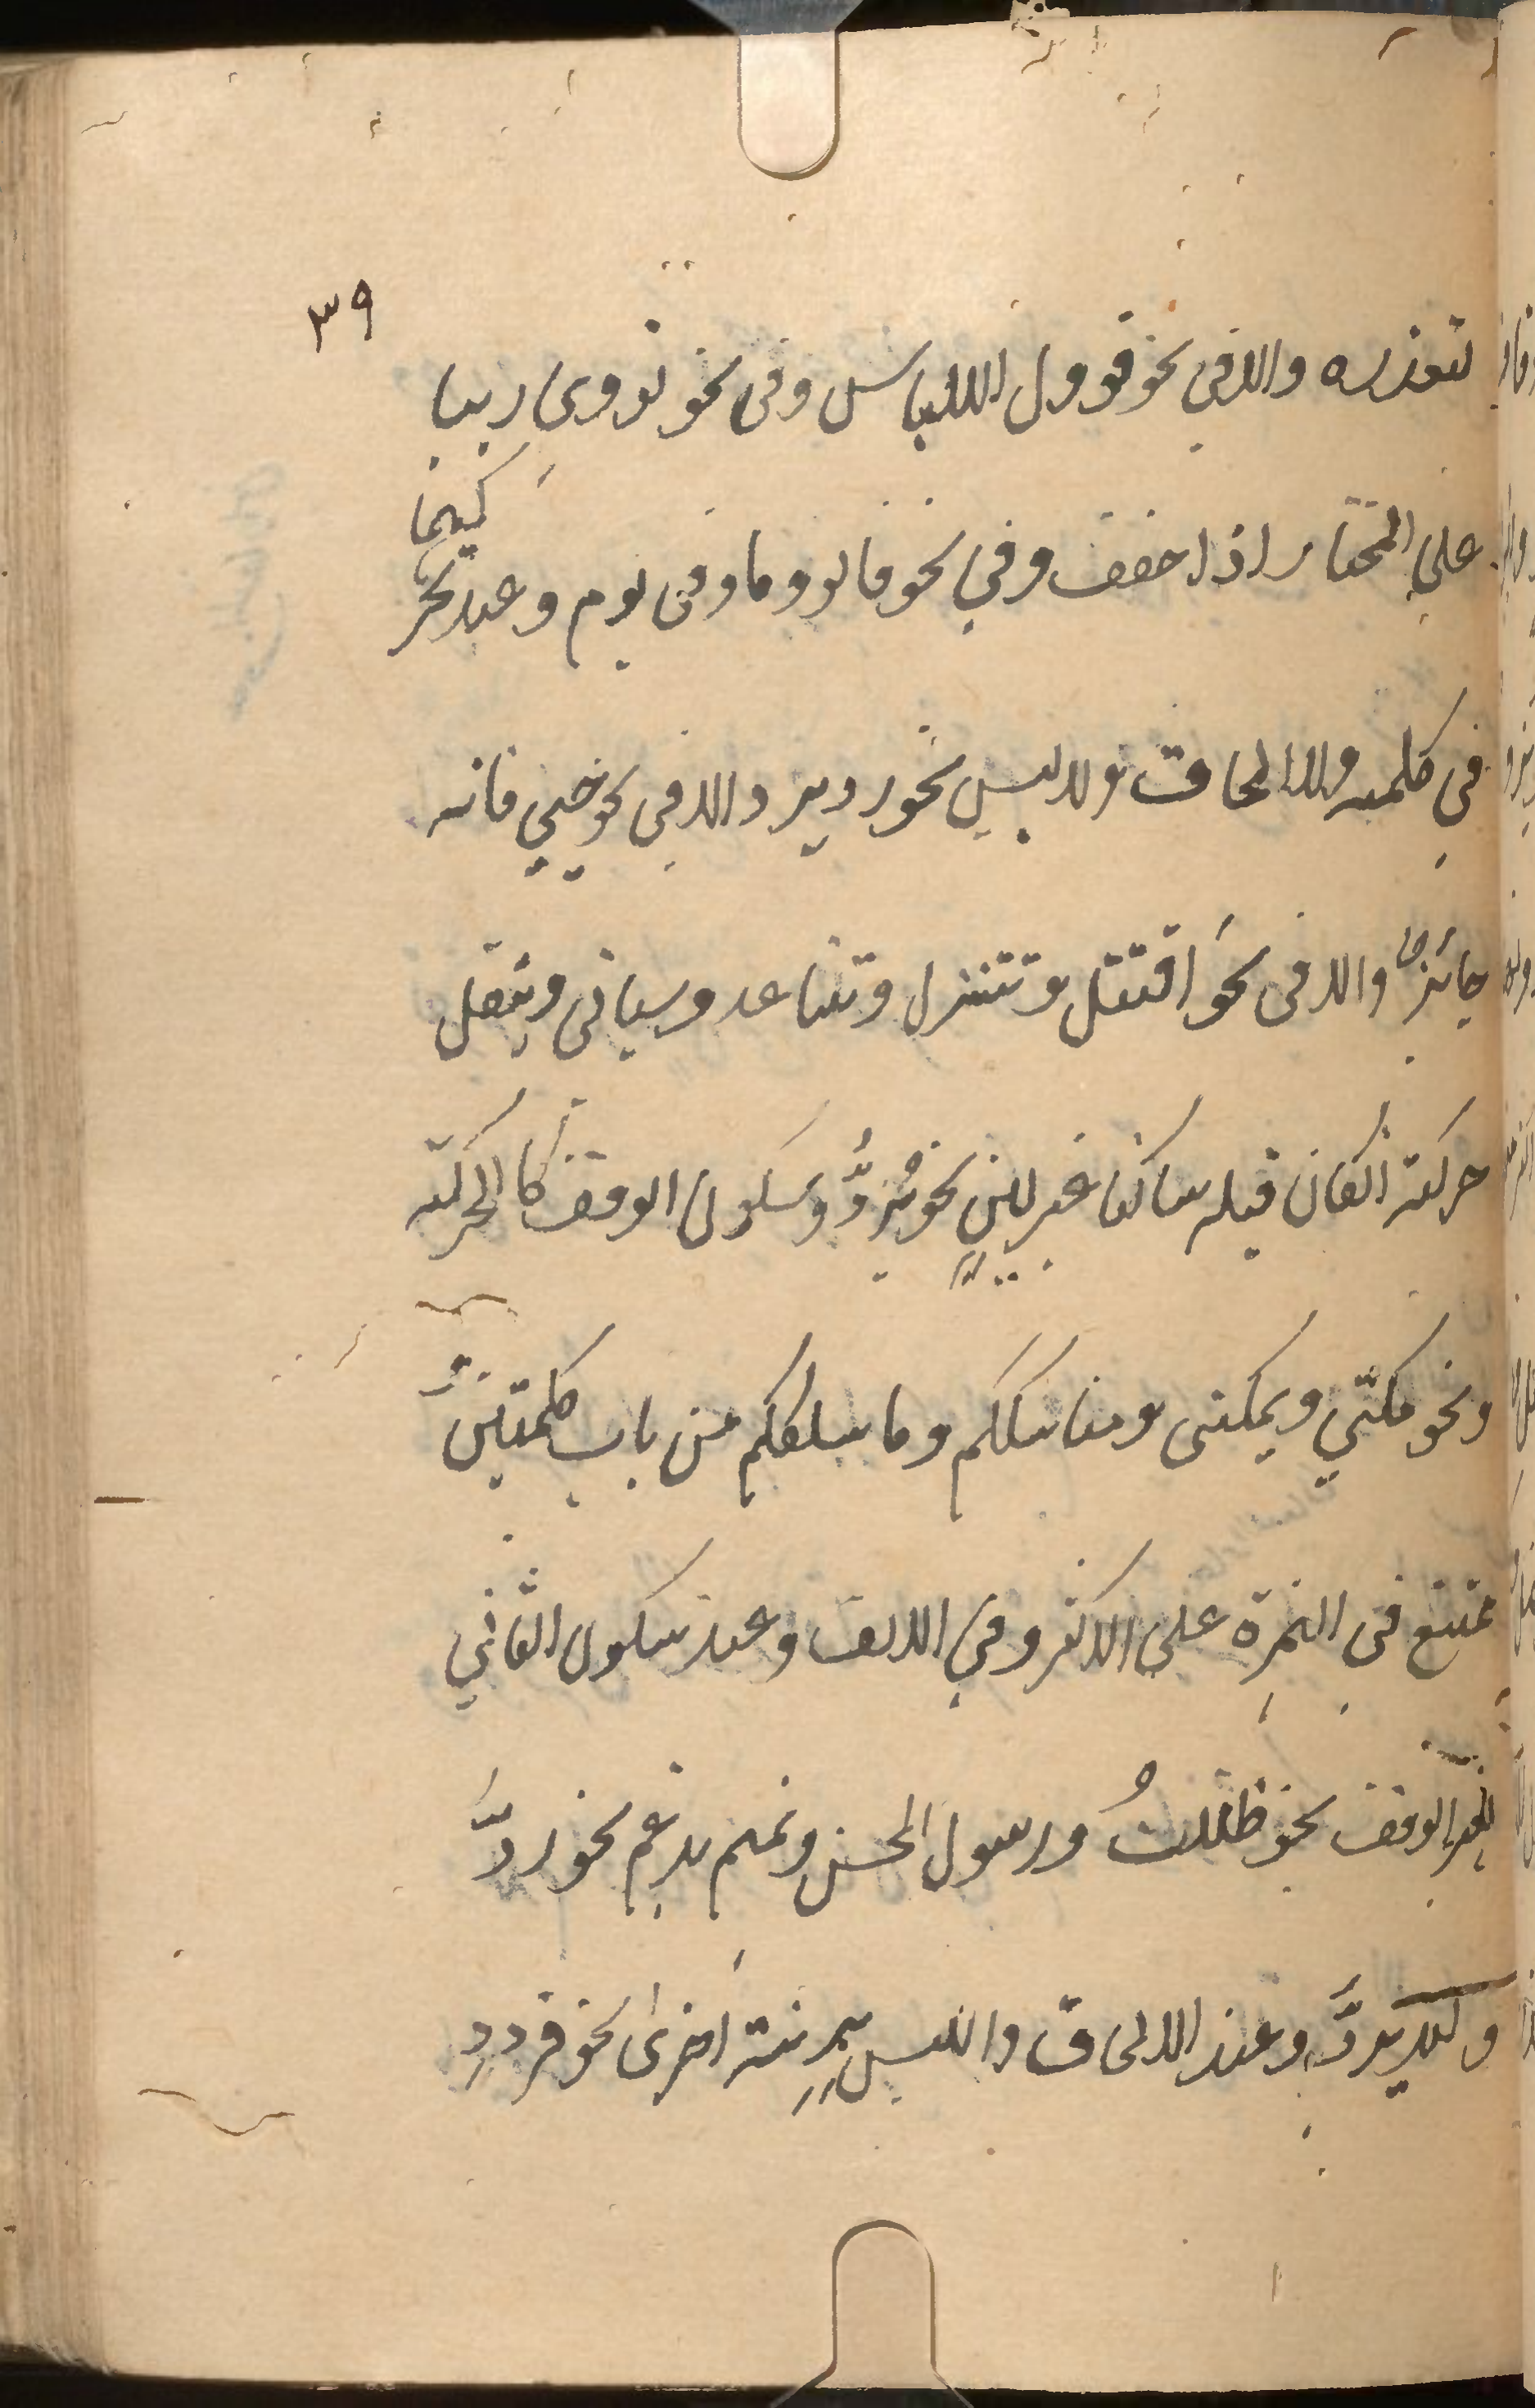 ٣٩
لتعذره والا في نحو قوول للالباس وفي نحو تووي ريبا
على المختار اذا خفف وفي نحو قالوا وما وفي يوم وعند تحركهما
في كلمة ولا الحاق ولا لبس نحو رد يرد والا في نحو حيي فانه
جائز والا في نحو اقتتل وتتنزل وتتباعد وسياتي وينقل
حركته ان كان قبله ساكنا غير لين نحو يردُّ وسكون الوقف كالحركة
ونحو مكنّي ويمكنني ومناسككم وما سلككم من باب كلمتين
ممتنع في الهمزة على الاكثر وفي الالف وعند سكون الثاني
لغير الوقف نحو ظللتُ ورسول الحسن وتميم تدغم نحو ردَّ
ولم يردَّ وعند الالحاق واللبس بزنة اخرى نحو قرددٍ